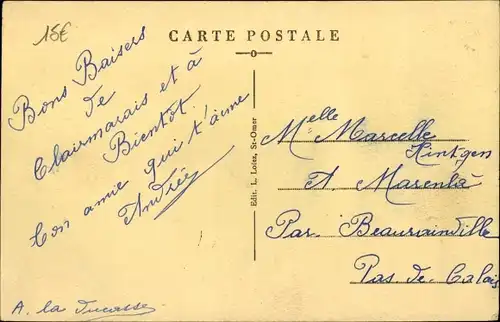 15€
CARTE POSTALE
Bons Baisers
de
Clairmarais et à
Bientôt!
Ton amie qui t'aime
Andrée
Edit. L. Loiez, St-Omer
Melle Marcelle
Hintgen
A. Marenla
Par. Beaurainville
Pas. de. Calais
A. la Ducasse